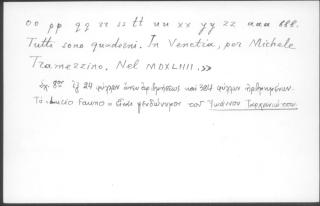 oo pp qq rr ss tt uu xx yy zz aaa lll.
Tutti sono quaderni. In Venetia, per Michele
Tramezzino. Nel MDXLIIII.»
σχ. 8ον ἐξ 24 φύλλων ἄνευ ἀριθμήσεως καὶ 384 φύλλων ἠριθμημένων.
Τὸ Lucio Fauno = εἶναι ψευδώνυμον τοῦ Ἰωάννου Ταρχανιώτου.